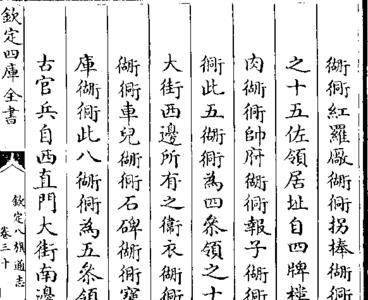 衚衕紅羅廠衚衕拐棒衚衕
之十五佐領居址自四牌樓
肉衚衕帥府衚衕報子衚衕
衕此五衚衕為四叅領之十
大街西邊所有之衛衣衚衕
衚衕車兒衚衕石碑衚衕寳
庫衚衕此八衚衕為五叅領
古官兵自西直門大街南邊
欽定四庫全書
欽定八旗通志
卷三十